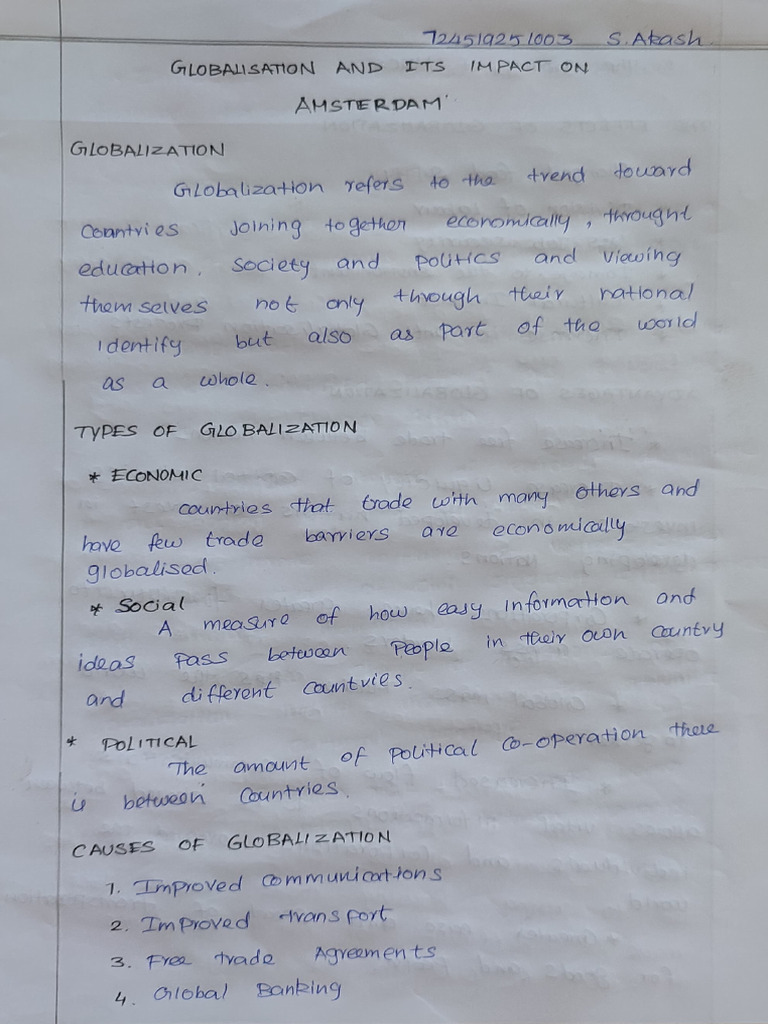 724519251003 S. Akash
GLOBALISATION AND ITS IMPACT ON
AMSTERDAM
GLOBALIZATION
Globalization refers to the trend toward
Countries Joining together economically, throught
education, society and politics and viewing
themselves not only through their national
identify but also as part of the world
as a whole.
TYPES OF GLOBALIZATION
* ECONOMIC
countries that trade with many others and
have few trade barriers are economically
globalised.
* Social
A measure of how easy information and
ideas Pass between People in their own country
and different countries.
* POLITICAL
The amount of political co-operation there
is between Countries.
CAUSES OF GLOBALIZATION
1. Improved communications
2. Improved transport
3. Free trade Agreements
4. Global Banking